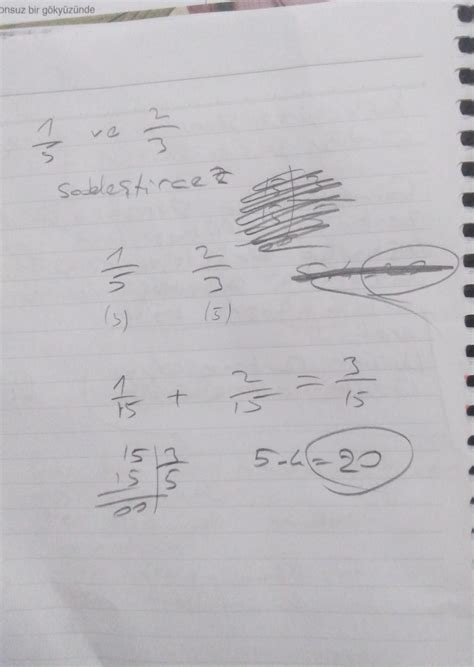 onsuz bir gökyüzünde
1/5 ve 2/3
Sadeleştircez
1/5 2/3
(3) (5)
1/15 + 2/15 = 3/15
15 | 3
15 | 5
00
5.4=20